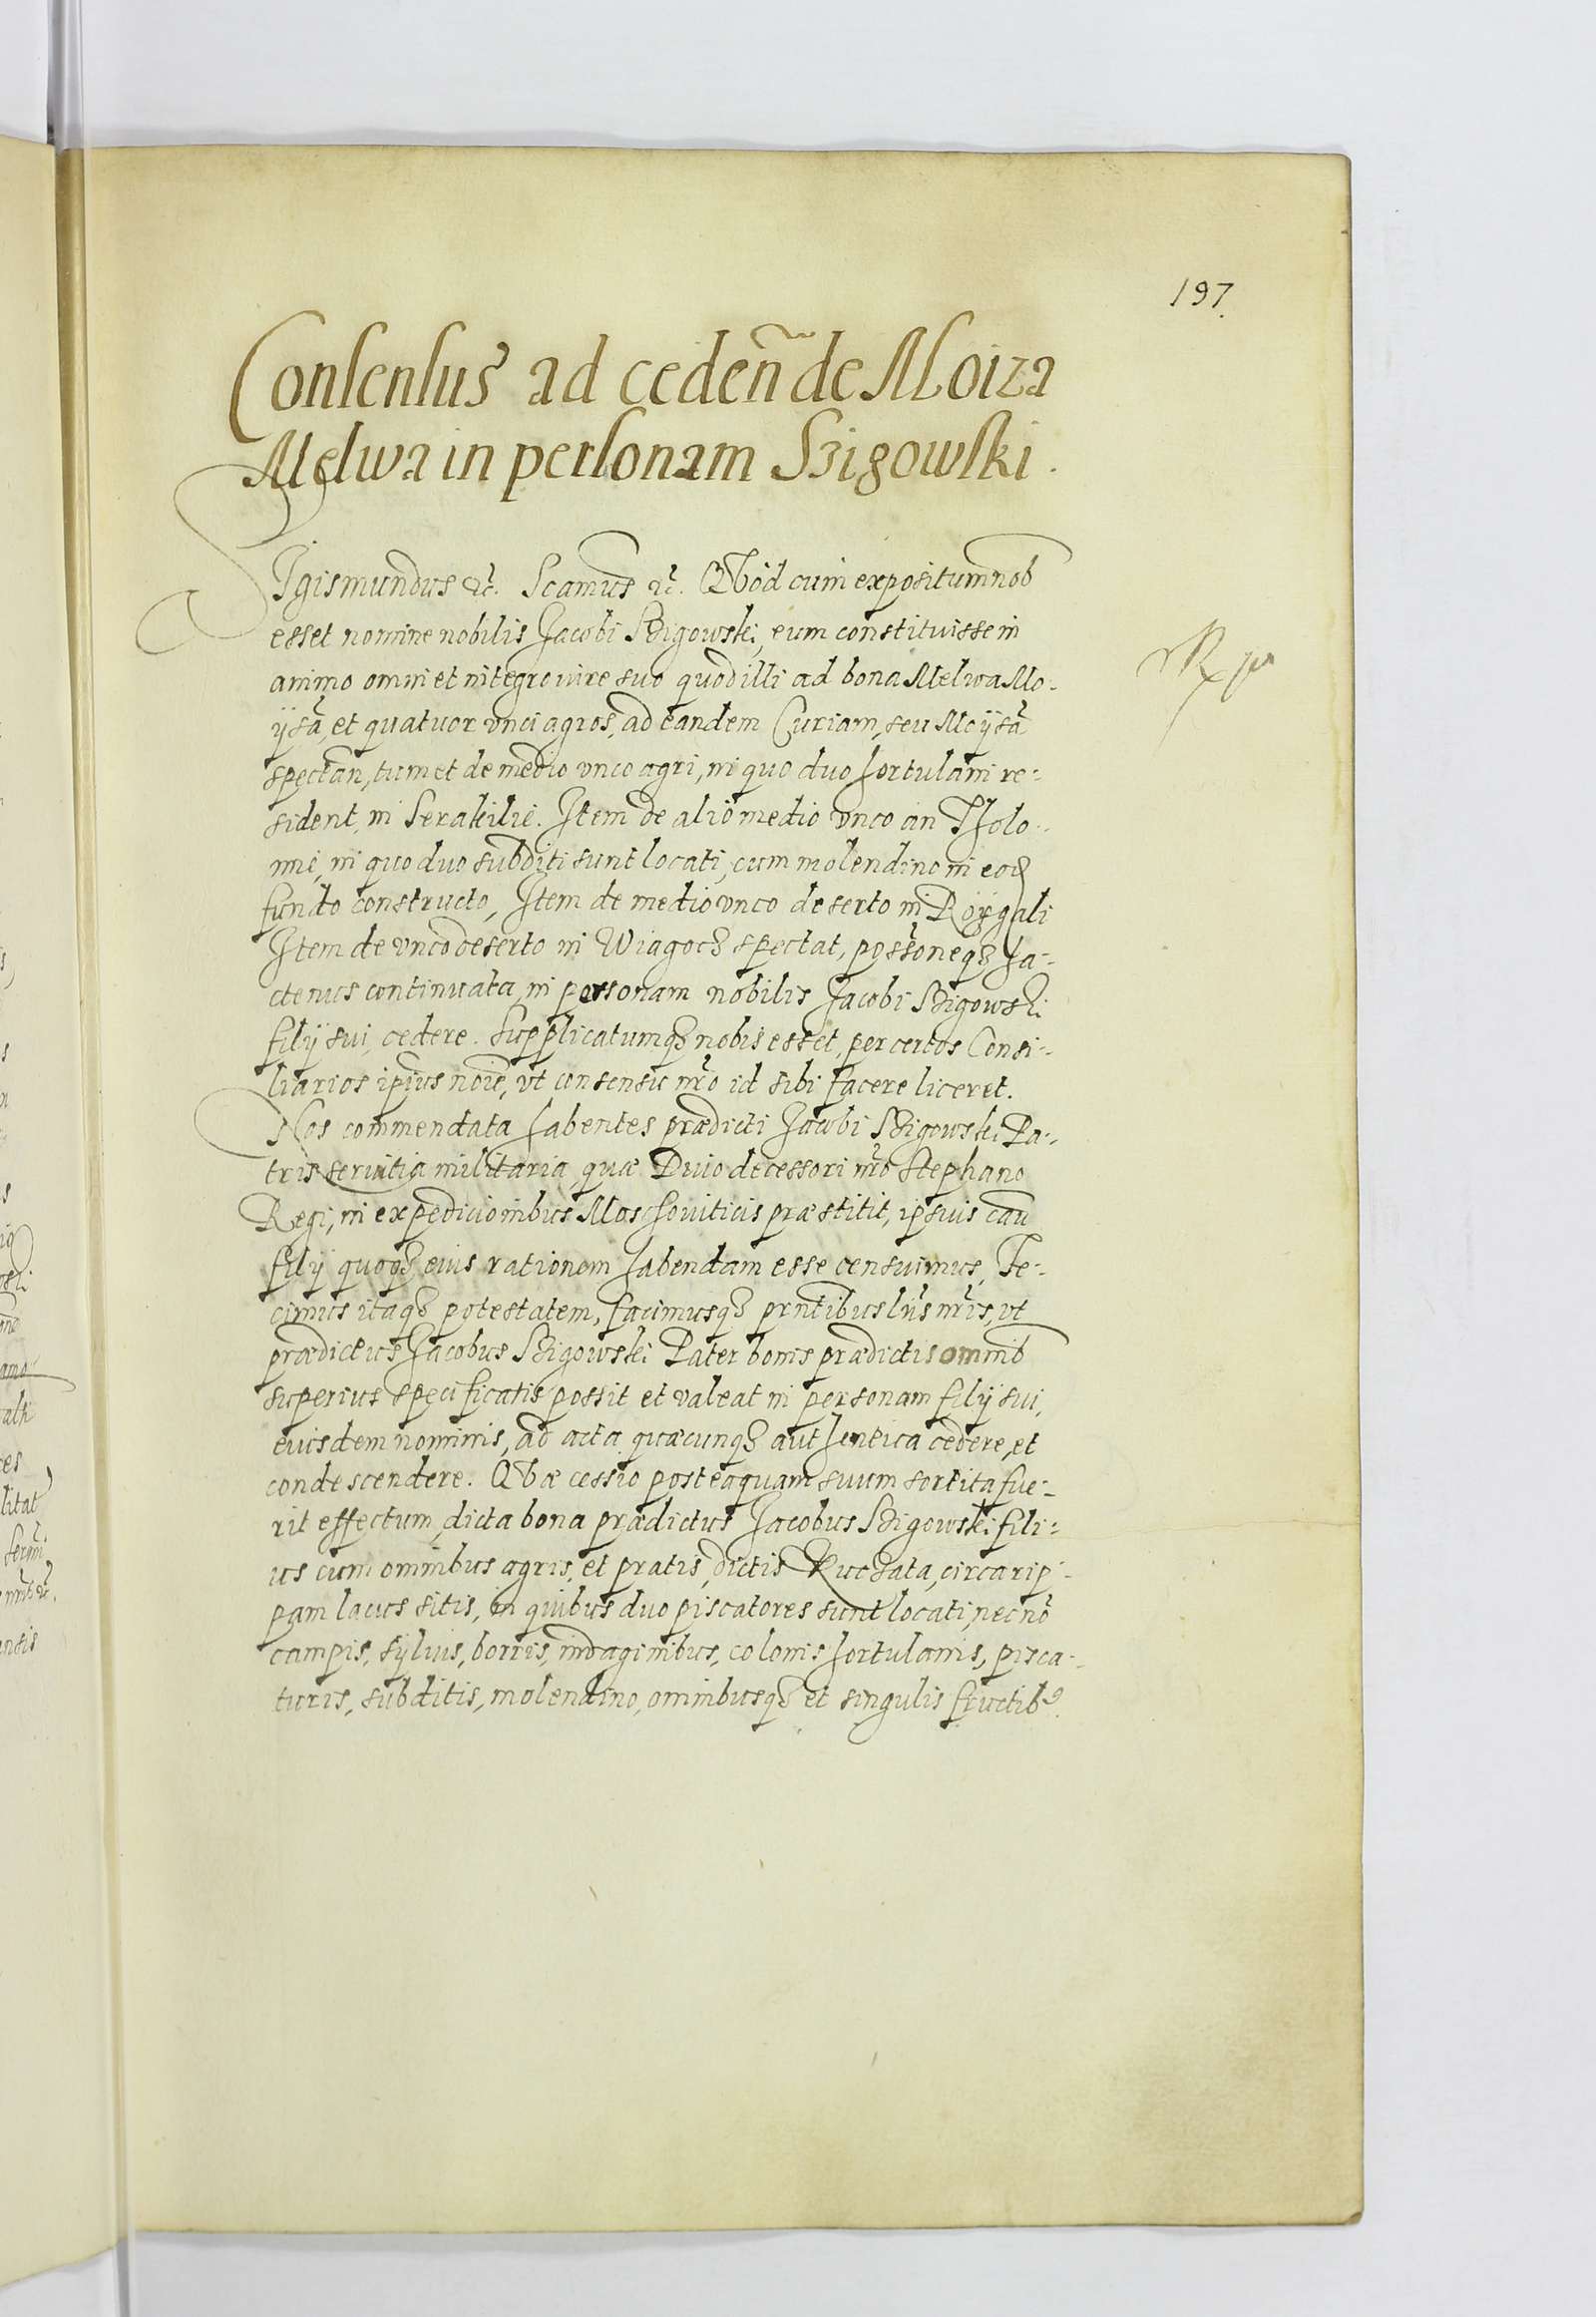 197.
Consensus ad cedeñ de Moiza
Melwa in personam Bzigowski.
Sigismundus etc. Scamus etc. Quod cum expositum nob
esset nomine nobilis Jacobi Bzigowski, eum constituisse in
animo omni et integro iure suo quod illi ad bona Melwa Mo-
ijsã, et quatuor vnci agros, ad eandem Curiam, seu Moijsã
spectañ, tum et de medio vnco agri, in quo duo hortulani re-
sident, in Serakilie. Item de alio medio vnco an Tholo-
mie, in quo duo subditi sunt locati, cum molendino in eoq
fundo constructo, Item de medio vnco deserto in Rojgali
Item de vnco deserto in Wiagocz spectat, possoneqz ha-
ctenus continuata, in personam nobilis Jacobi Bzigowski
filij sui, cedere. Supplicatumqz nobis esset, per certos Consi-
liarios ipius noie, vt consensu nro id sibi facere liceret.
Nos commendata habentes prædicti Jacobi Bzigowski Pa-
tris seruitia militaria, quæ Diuo decessori nro Stephano
Regi, in expedicionibus Moschouiticis præstitit, ipsius cau
filij quoqz eius rationem habendam esse censuimus, Fe-
cimus itaqz potestatem, facimusqz prntibus lris nris, vt
prædictus Jacobus Bzigowski Pater bonis prædictis omnib
superius specificatis possit et valeat in personam filij sui,
eiusdem nominis, ad acta quæcunqz authentica cedere, et
condescendere. Quæ cessio posteaquam suum sortita fue-
rit effectum, dicta bona prædictus Jacobus Bzigowski fili-
us cum omnibus agris, et pratis, dictis Ruchata, circa rip-
pam lacus sitis, in quibus duo piscatores sunt locati, necnõ
campis, syluis, borris, indaginibus, colonis hortulanis, pisca-
turis, subditis, molendino, omnibusqz et singulis fructib9